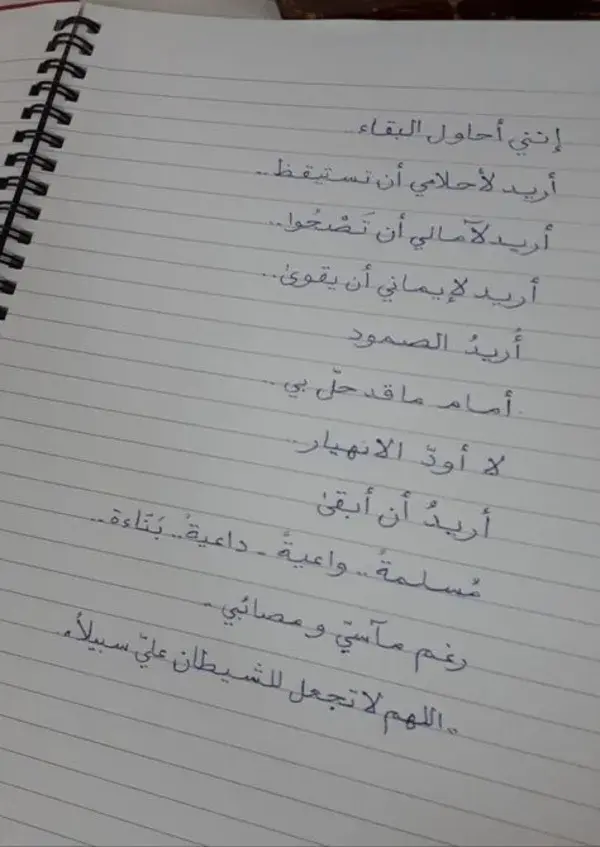 إنني أحاول البقاء
أريد لأحلامي أن تستيقظ..
أريد لآمالي أن تَصْحُوا..
أريد لإيماني أن يقوىٰ..
أُريدُ الصمود
أمام ما قد حلّ بي..
لا أودّ الانهيار..
أريدُ أن أبقىٰ
مُسلمةً.. واعيةً.. داعيةً.. بَنّاءة..
رغم مآسيّ و مصائبي.
.. اللهم لا تجعل للشيطان عليّ سبيلاً.